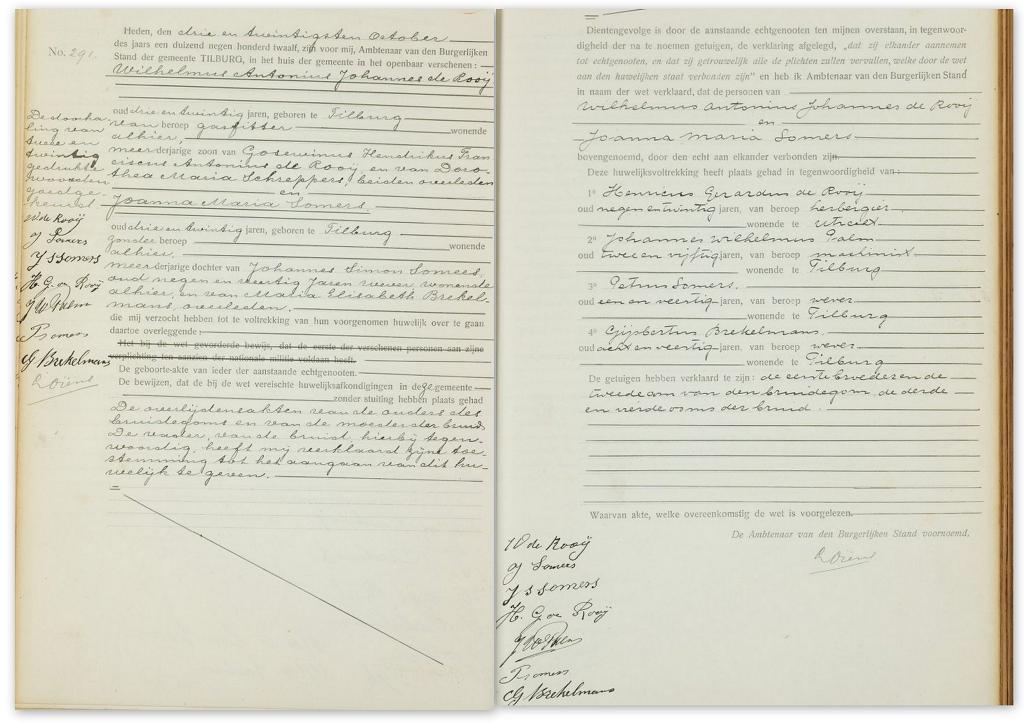 No. 291.
Heden, den drie en twintigsten October
des jaars een duizend negen honderd twaalf, zijn voor mij, Ambtenaar van den Burgerlijken
Stand der gemeente TILBURG, in het huis der gemeente in het openbaar verschenen:
Wilhelmus Antonius Johannes de Rooij
oud drie en twintig jaren, geboren te Tilburg
van beroep gasfitter wonende
alhier,
meerderjarige zoon van Goswinus Hendrikus Fran
ciscus Antonius de Rooij, en van Doro-
thea Maria Schreppers, beiden overleden
en
Joanna Maria Somers,
oud drie en twintig jaren, geboren te Tilburg
zonder beroep wonende
alhier.
meerderjarige dochter van Johannes Simon Somers,
oud negen en veertig jaren wever wonende
alhier, en van Maria Elisabeth Brekel-
mans, overleden.
die mij verzocht hebben tot te voltrekking van hun voorgenomen huwelijk over te gaan
daartoe overleggende:
Het bij de wet gevorderde bewijs, dat de eerste der verschenen personen aan zijne
verplichting ten aanzien der nationale militie voldaan heeft.
De geboorte-akte van ieder der aanstaande echtgenooten.
De bewijzen, dat de bij de wet vereischte huwelijksafkondigingen in deze gemeente
zonder stuiting hebben plaats gehad
De overlijdensakten van de ouders des
bruidegoms en van de moeder der bruid.
De vader, van de bruid, hierbij tegen-
woordig, heeft mij verklaard zijne toe-
stemming tot het aangaan van dit hu-
welijk te geven.
De doorha-
ling van
twee en
twintig
gedrukte
woorden
goedge-
keurd
W de Rooij
J Somers
J S Somers
H. G. de Rooij
J W Palm
P Somers
G Brekelmans
Dientengevolge is door de aanstaande echtgenooten ten mijnen overstaan, in tegenwoor-
digheid der na te noemen getuigen, de verklaring afgelegd, „dat zij elkander aannemen
tot echtgenooten, en dat zij getrouwelijk alle de plichten zullen vervullen, welke door de wet
aan den huwelijken staat verbonden zijn" en heb ik Ambtenaar van den Burgerlijken Stand
in naam der wet verklaard, dat de personen van
Wilhelmus Antonius Johannes de Rooij
en
Joanna Maria Somers
bovengenoemd, door den echt aan elkander verbonden zijn.
Deze huwelijksvoltrekking heeft plaats gehad in tegenwoordigheid van:
1° Henricus Gerardus de Rooij
oud negen en twintig jaren, van beroep herbergier
wonende te Utrecht
2° Johannes Wilhelmus Palm
oud twee en vijftig jaren, van beroep machinist
wonende te Tilburg
3° Petrus Somers.
oud een en veertig jaren, van beroep wever
wonende te Tilburg
4° Gijsbertus Brekelmans.
oud acht en veertig jaren, van beroep wever
wonende te Tilburg
De getuigen hebben verklaard te zijn: de eerste broeder en de
tweede oom van den bruidegom, de derde
en vierde ooms der bruid.
Waarvan akte, welke overeenkomstig de wet is voorgelezen.
De Ambtenaar van den Burgerlijken Stand voornoemd,
W de Rooij
J Somers
J S Somers
H. G. de Rooij
J W Palm
P Somers
G Brekelmans